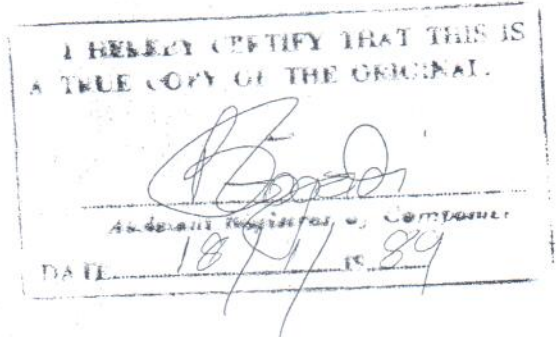 I HEREBY CERTIFY THAT THIS IS
A TRUE COPY OF THE ORIGINAL.
Assistant Registrar of Companies
DATE 18/ 19 89